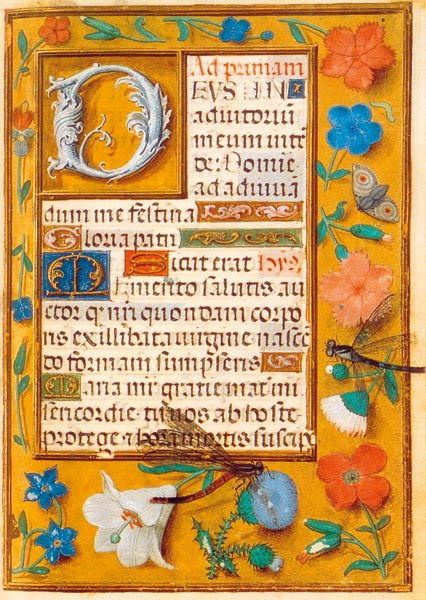 Ad primam
DEUS IN
adiutoriū
meum inte
de: Domie
ad adiuuā
dum me festina
Gloria patri
Sicut erat Hyṁ
Memento salutis au
ctor q nr̄i quondam corpo
ris ex illibata uirgine nascē
do formam sumpseris
Maria mr̄ gratie mat̄ mi
sericordie tu nos ab hoste
protege & hora mortis suscipe